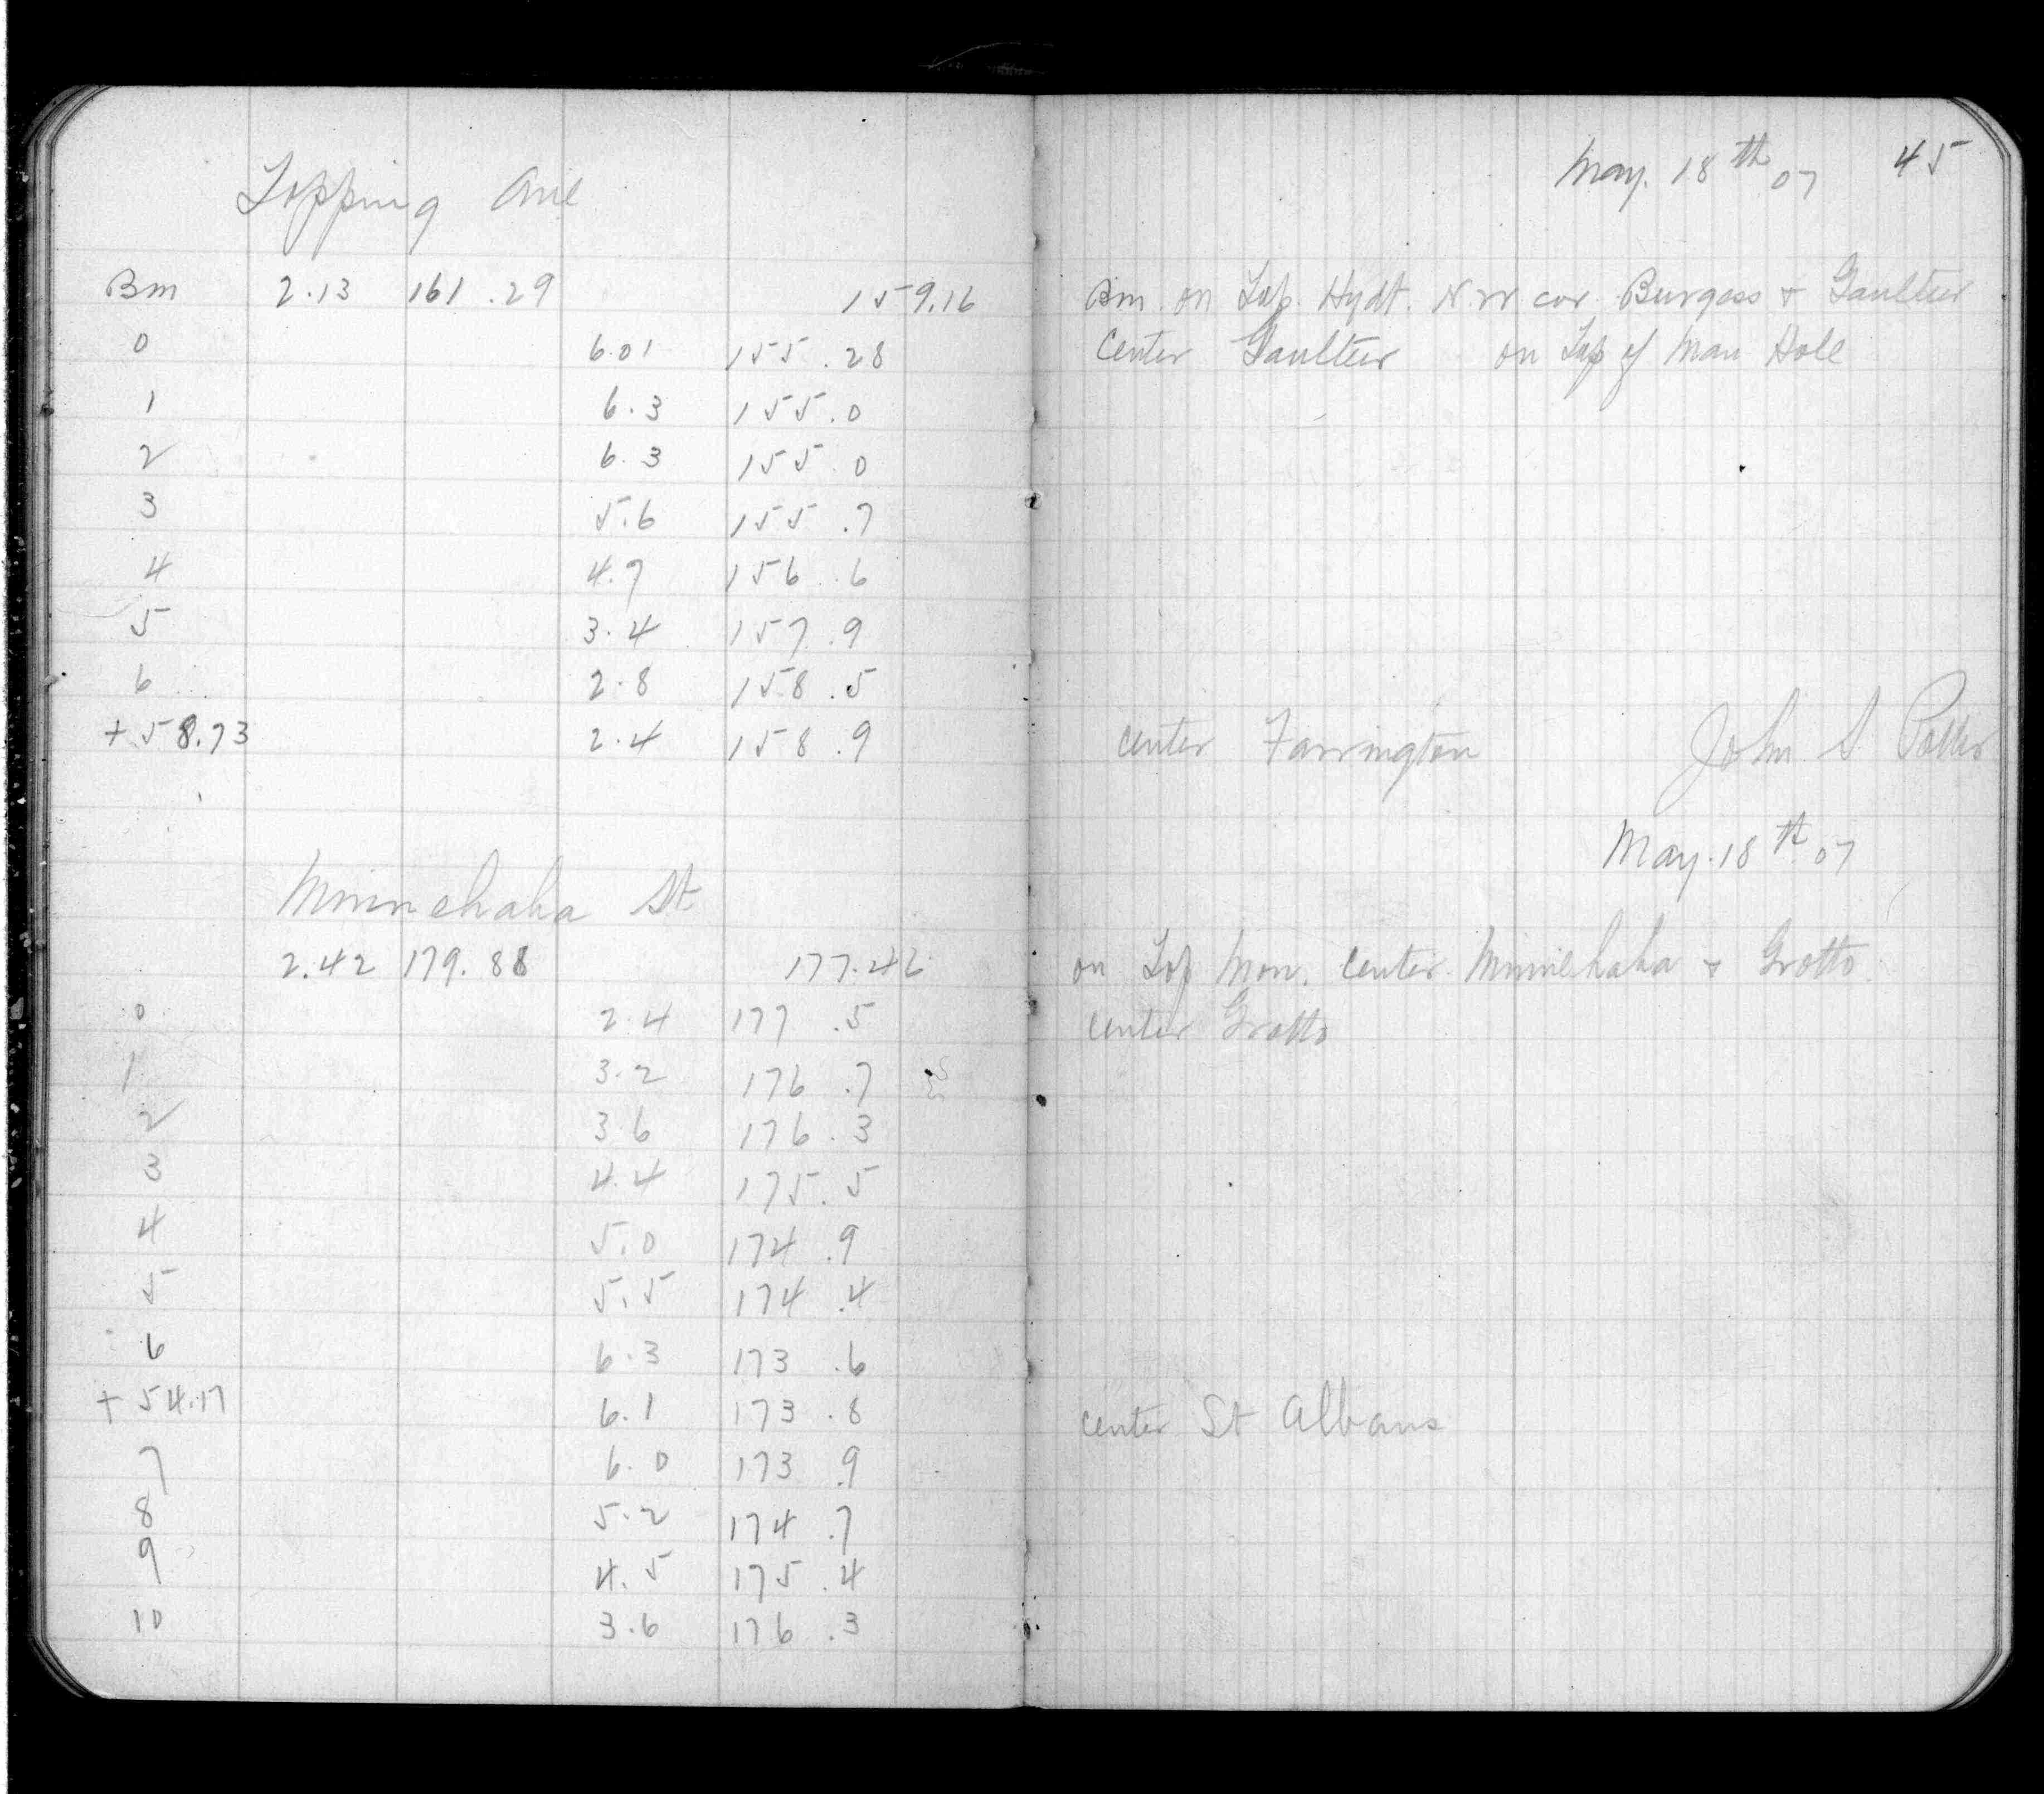 Topping Ave
Bm 2.13 161.29 159.16
0 6.01 155.28
1 6.3 155.0
2 6.3 155.0
3 5.6 155.7
4 4.7 156.6
5 3.4 157.9
6 2.8 158.5
+58.73 2.4 158.9
Minnehaha St
2.42 179.88 177.46
0 2.4 177.5
1 3.2 176.7
2 3.6 176.3
3 4.4 175.5
4 5.0 174.9
5 5.5 174.4
6 6.3 173.6
+54.17 6.1 173.8
7 6.0 173.9
8 5.2 174.7
9 4.5 175.4
10 3.6 176.3
May. 18th 07 45
Bm. on Top. Hydt. N.W cor. Burgess & Gaultier
Center Gaultier on Top of Man Hole
center Farrington John S
May. 18th 07
on Top Mon. Center Minnehaha & Grotto
center Grotto
center St Albans